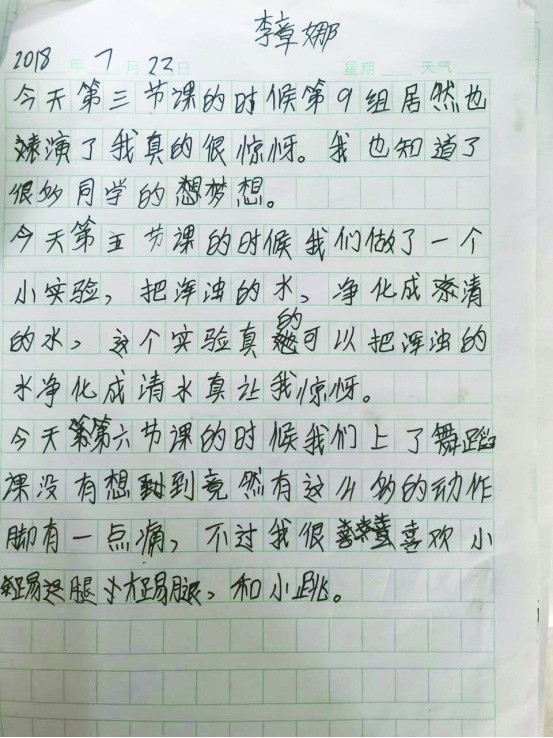 李章娜
2018年7月23日 星期 天气
今天第三节课的时候第9组居然也
表演了我真的很惊讶。我也知道了
很多同学的梦想。
今天第五节课的时候我们做了一个
小实验，把浑浊的水，净化成清
的水，这个实验真的可以把浑浊的
水净化成清水真让我惊讶。
今天第六节课的时候我们上了舞蹈
课没有想到竟然有这么多的动作
脚有一点痛，不过我很喜欢小
踢腿 踢腿，和小跳。